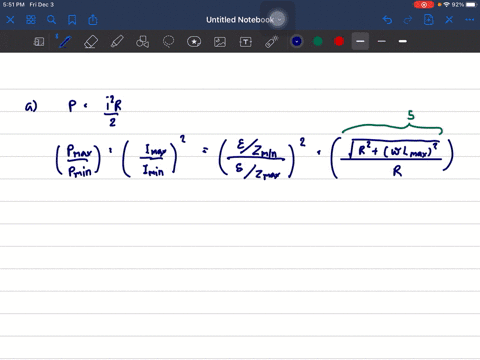 5:51 PM Fri Dec 3
92%
Untitled Notebook
5
a) P = i²R / 2
(Pmax / Pmin) = (Imax / Imin)² = (ε/Zmin / ε/Zmax)² = (√(R² + (ωLmax)²) / R)